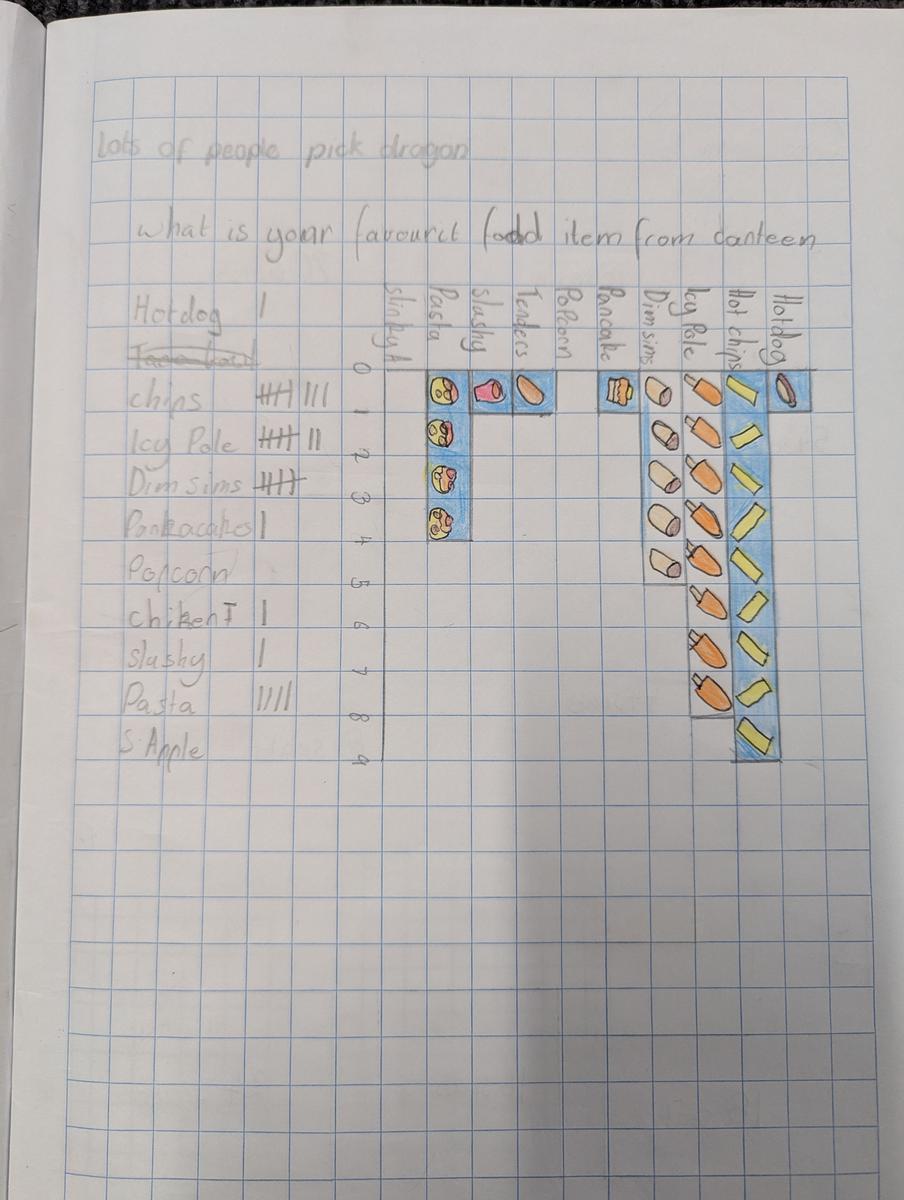 Lots of people pick dragon
what is your favourit food item from canteen
Hotdog |
chips 卌 |||
Icy Pole 卌 ||
Dim sims 卌
Pankacakes |
Popcorn
chiken T |
slushy |
Pasta ||||
S. Apple
slinky A
Pasta
slushy
Tenders
Popcorn
Pancake
Dim sims
Icy Pole
Hot chips
Hotdog
0
1
2
3
4
5
6
7
8
9